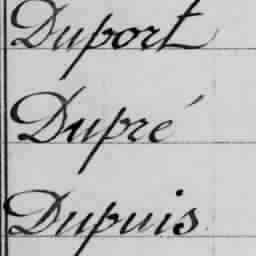 Duport
Dupré
Dupuis